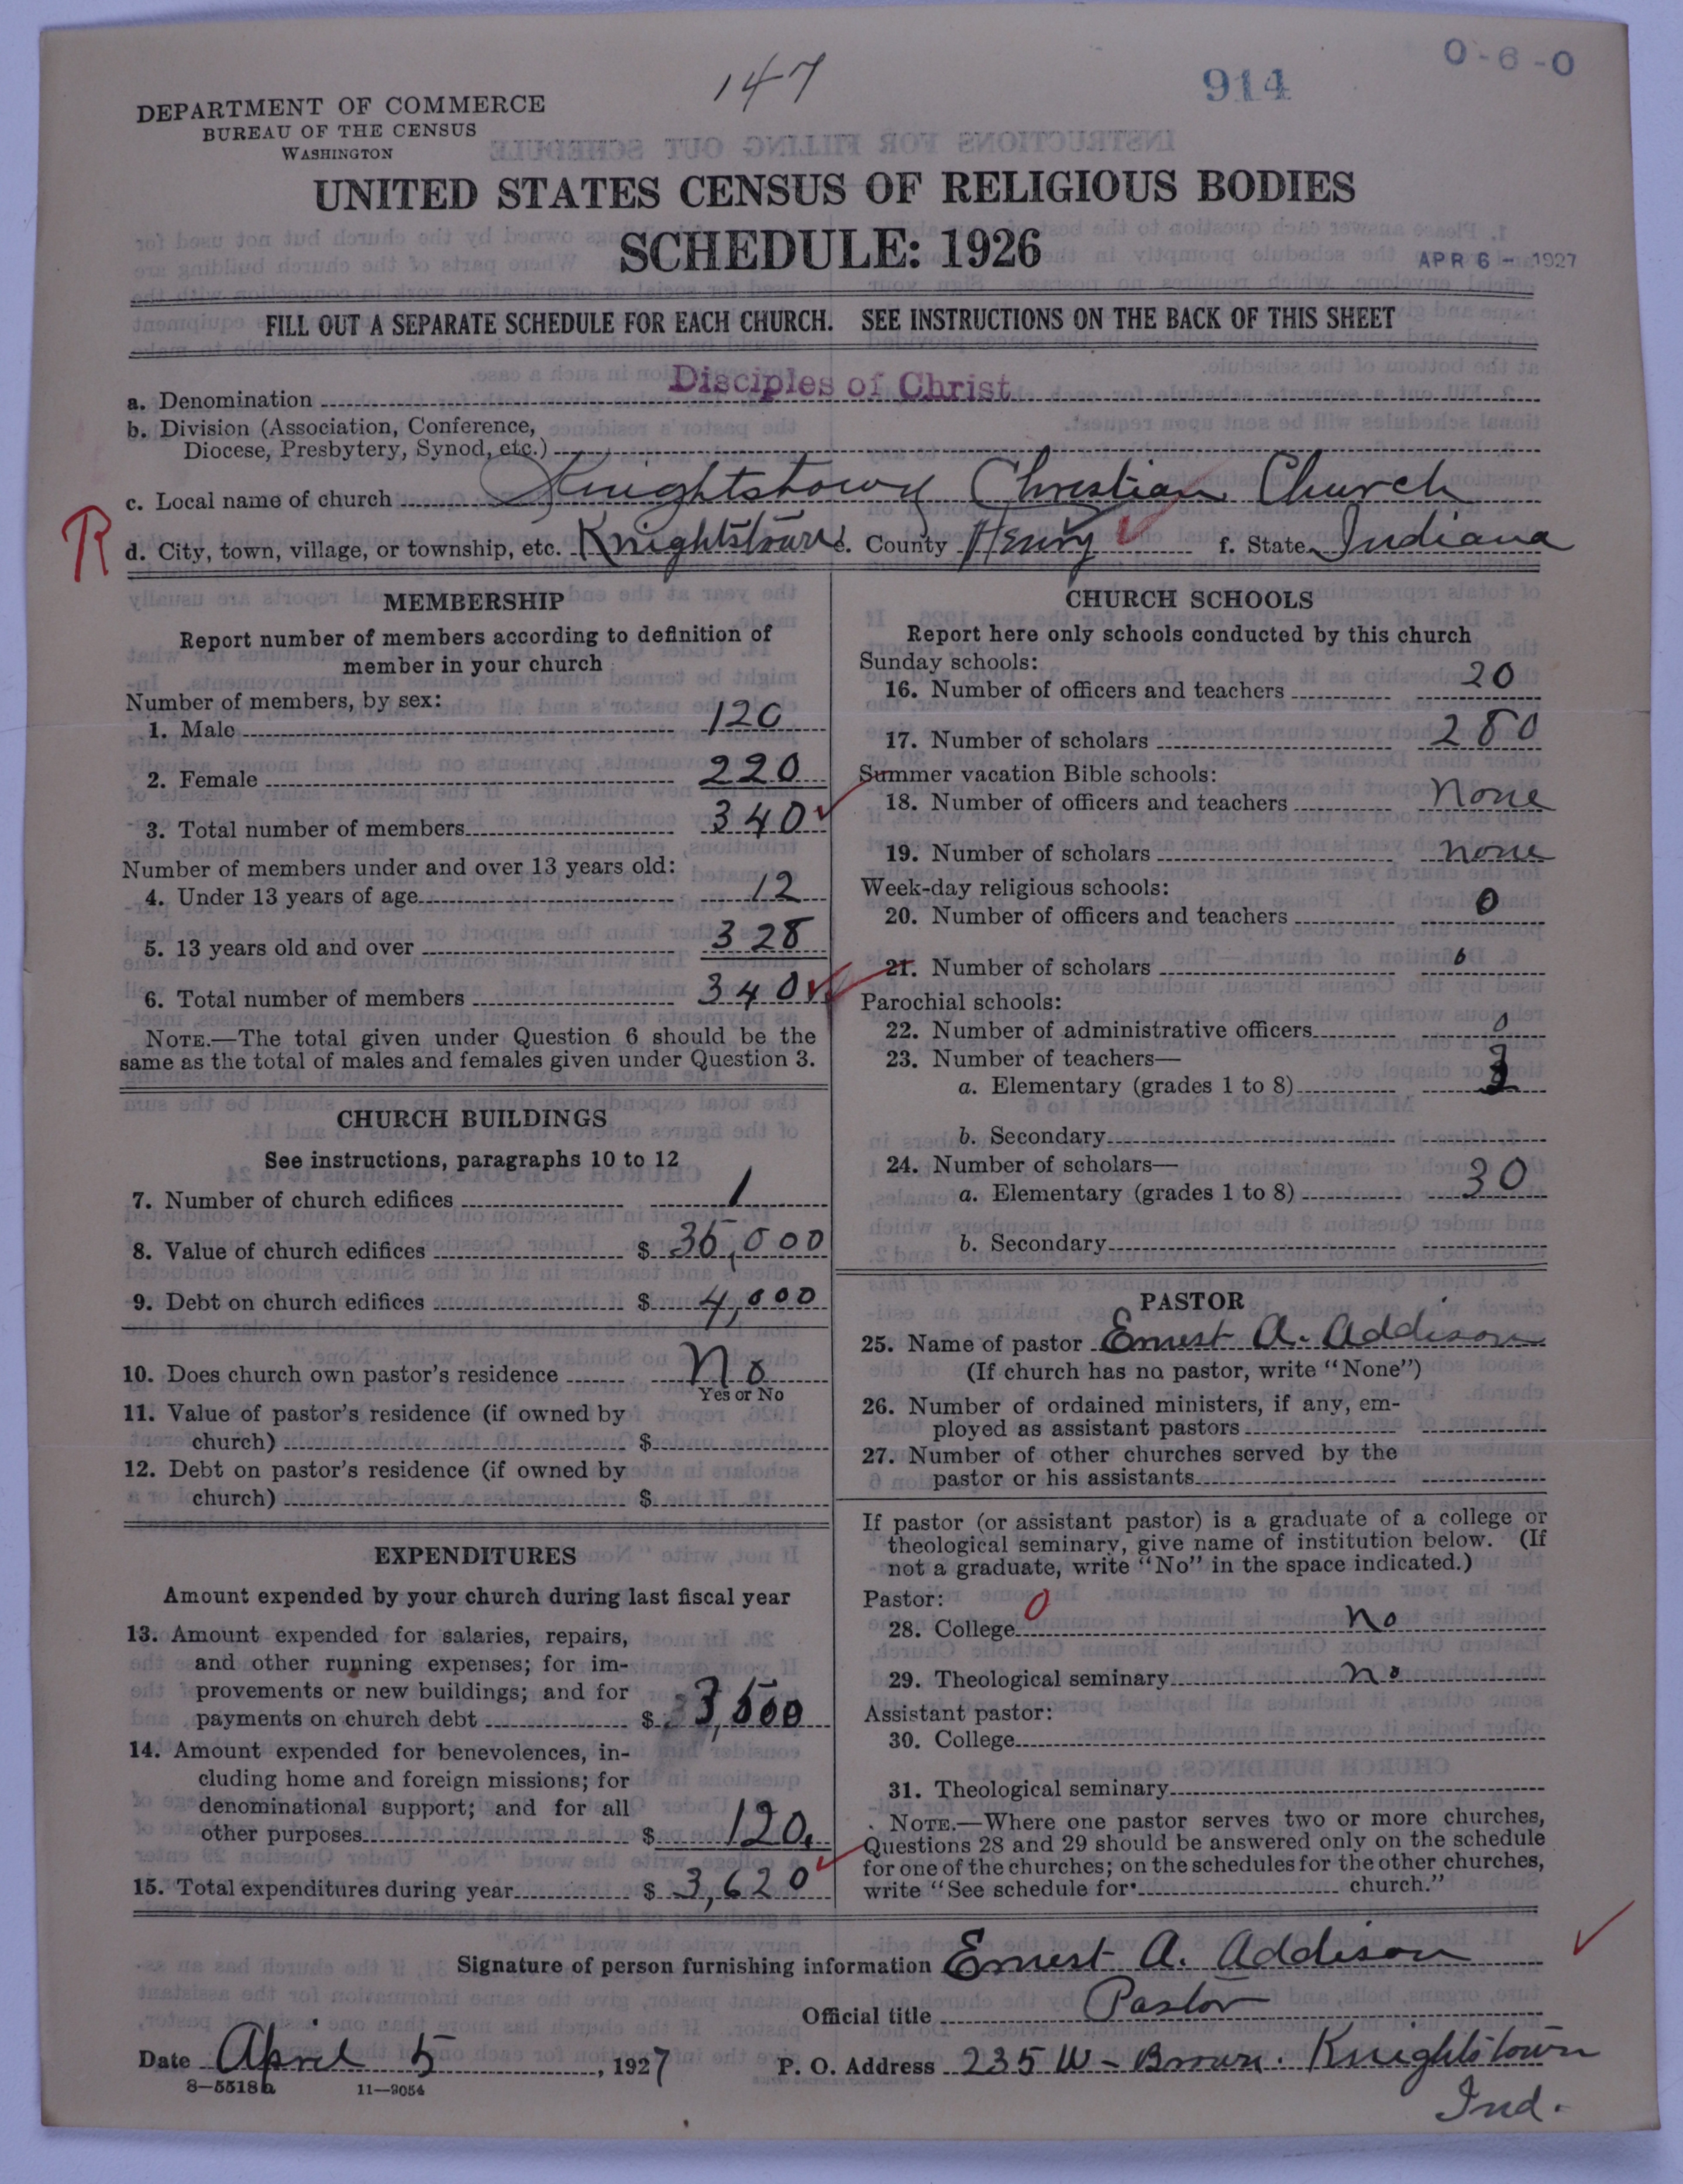 147
914
0-6-0
DEPARTMENT OF COMMERCE
BUREAU OF THE CENSUS
WASHINGTON
UNITED STATES CENSUS OF RELIGIOUS BODIES
SCHEDULE: 1926
APR 6 - 1927
FILL OUT A SEPARATE SCHEDULE FOR EACH CHURCH. SEE INSTRUCTIONS ON THE BACK OF THIS SHEET
a. Denomination Disciples of Christ
b. Division (Association, Conference,
Diocese, Presbytery, Synod, etc.)
c. Local name of church Knightstown Christian Church
R
d. City, town, village, or township, etc. Knightstown e. County Henry f. State Indiana
MEMBERSHIP
Report number of members according to definition of
member in your church
Number of members, by sex:
1. Male 120
2. Female 220
3. Total number of members 340
Number of members under and over 13 years old:
4. Under 13 years of age 12
5. 13 years old and over 328
6. Total number of members 340
NOTE.—The total given under Question 6 should be the
same as the total of males and females given under Question 3.
CHURCH BUILDINGS
See instructions, paragraphs 10 to 12
7. Number of church edifices 1
8. Value of church edifices $ 35,000
9. Debt on church edifices $ 4,000
10. Does church own pastor's residence No
Yes or No
11. Value of pastor's residence (if owned by
church) $
12. Debt on pastor's residence (if owned by
church) $
EXPENDITURES
Amount expended by your church during last fiscal year
13. Amount expended for salaries, repairs,
and other running expenses; for im-
provements or new buildings; and for
payments on church debt $ 3,500
14. Amount expended for benevolences, in-
cluding home and foreign missions; for
denominational support; and for all
other purposes $ 120.
15. Total expenditures during year $ 3,620
CHURCH SCHOOLS
Report here only schools conducted by this church
Sunday schools:
16. Number of officers and teachers 20
17. Number of scholars 280
Summer vacation Bible schools:
18. Number of officers and teachers None
19. Number of scholars none
Week-day religious schools:
20. Number of officers and teachers 0
21. Number of scholars 0
Parochial schools:
22. Number of administrative officers 0
23. Number of teachers—
a. Elementary (grades 1 to 8) 3
b. Secondary
24. Number of scholars—
a. Elementary (grades 1 to 8) 30
b. Secondary
PASTOR
25. Name of pastor Ernest A. Addison
(If church has no pastor, write "None")
26. Number of ordained ministers, if any, em-
ployed as assistant pastors
27. Number of other churches served by the
pastor or his assistants
If pastor (or assistant pastor) is a graduate of a college or
theological seminary, give name of institution below. (If
not a graduate, write "No" in the space indicated.)
Pastor: 0
28. College No
29. Theological seminary No
Assistant pastor:
30. College
31. Theological seminary
NOTE.—Where one pastor serves two or more churches,
Questions 28 and 29 should be answered only on the schedule
for one of the churches; on the schedules for the other churches,
write "See schedule for church."
Signature of person furnishing information Ernest A. Addison
Official title Pastor
Date April 5, 1927 P. O. Address 235 W - Brown. Knightstown
Ind.
8—5518a 11—9054